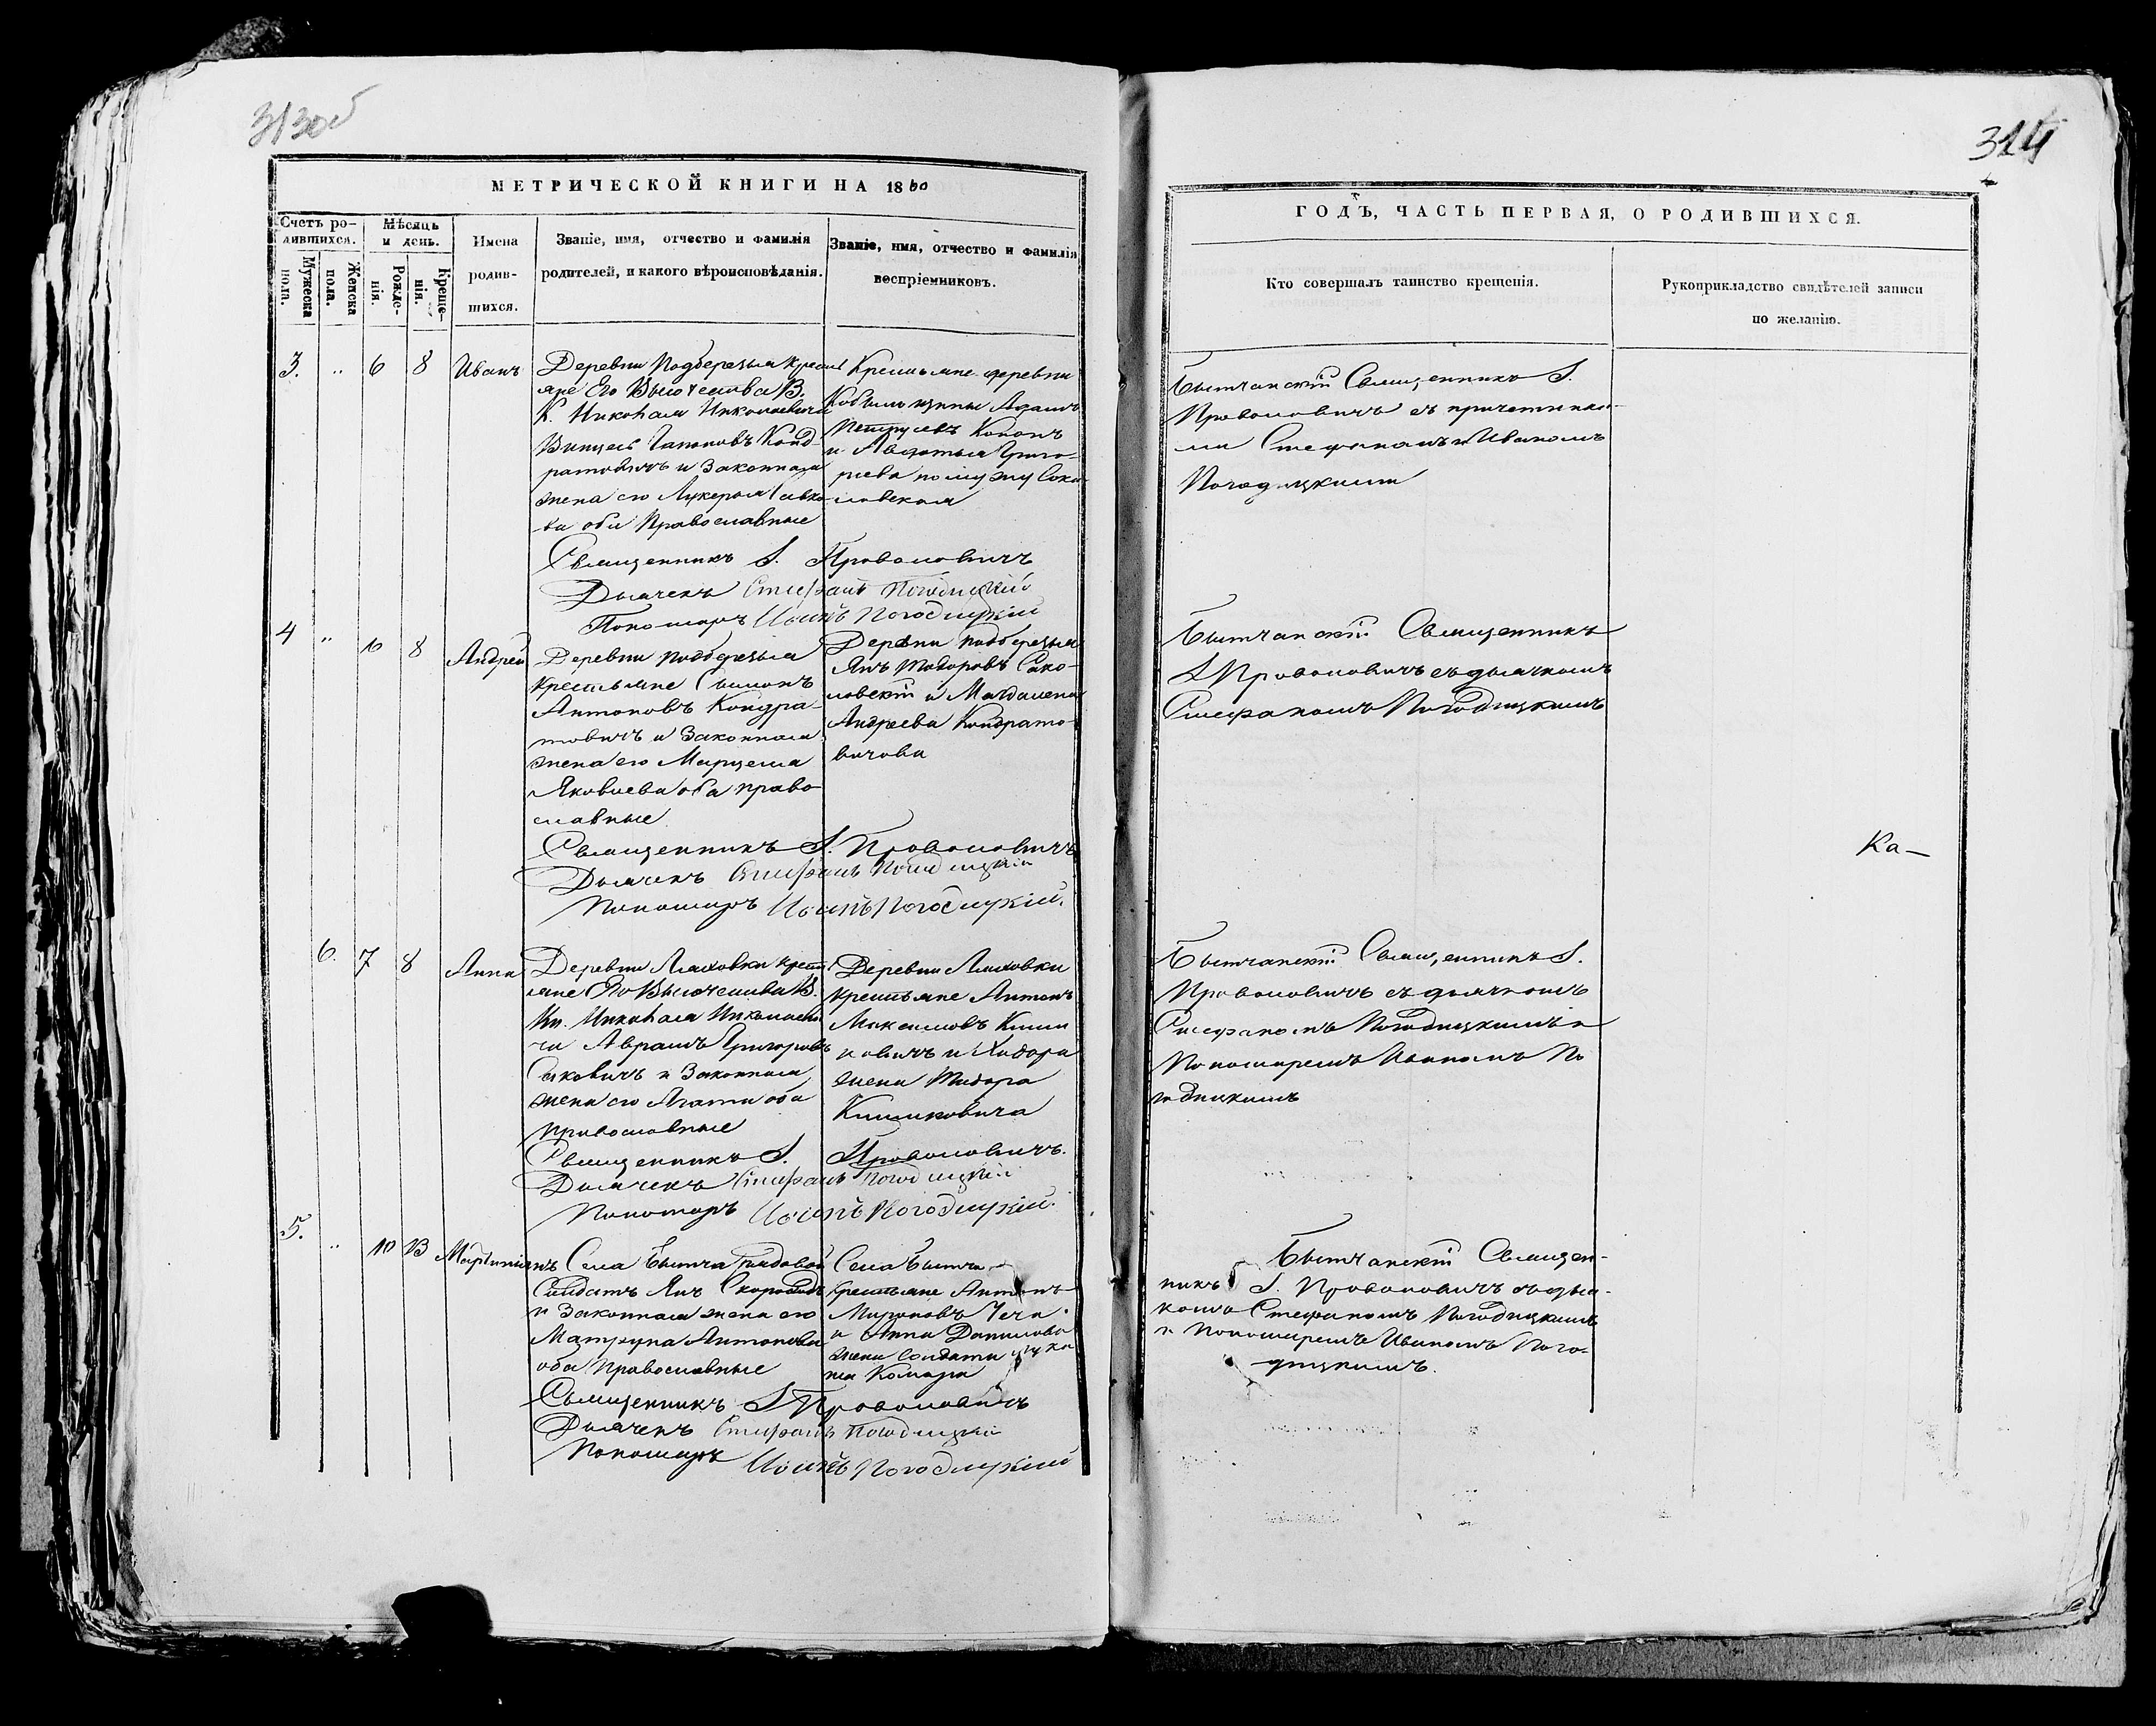 313об
314
МЕТРИЧЕСКОЙ КНИГИ НА 1860
Счетъ ро-
дившихся.
Мужеска
пола.
Женска
пола.
Мѣсяцъ
и день.
Рожде-
нія.
Креще-
нія.
Имена
родив-
шихся.
Званіе, имя, отчество и фамилія
родителей, и какого вѣроисповѣданія.
Званіе, имя, отчество и фамилія
воспріемниковъ.
3. „ 6 8 Иванъ
Деревни Подберезья крестья
яне Его Высочества В.
К. Николая Николаевича
Винцесь Гапоновъ Конд-
ратовичъ и Законная
жена его Лукерья Савко-
ва оба Православные
Крестьяне деревни
Кобыльщины Адамъ
Петрусевъ
и Авдотья Григо-
рьева по мужу Соко-
ловская
Священникъ I. Проволовичъ
Дьячекъ Стефанъ Погодицкій
Пономарь Иванъ Погодицкій
4 „ 6 8 Андрей
Деревни Подберезья
Крестьяне Сымонъ
Антоновъ Кондра-
товичъ и Законная
жена его Марцеля
Яковлева оба право-
славные
Деревни Подберезья
Янъ Тодоровъ Соко-
ловскій и Магдалена
Андреева Кондрато-
вичова
Священникъ I. Проволовичъ
Дьячекъ Стефанъ Погодицкій
Пономарь Иванъ Погодицкій.
6. 7 8 Анна
Деревни Ляховки крестья
яне Его Высочества В.
Кн. Николая Николаеви
ча Аврамъ Григоровъ
Сековичъ и Законная
жена его Агата оба
Православные
Деревни Ляховки
крестьяне Антонъ
Максимовъ Клим
ковичъ и Ходора
жена Тодора
Климковича
Священникъ I. Проволовичъ.
Дьячекъ Стефанъ Погодицкій
Пономарь Иванъ Погодицкій.
5. „ 10 13 Мартиніанъ
Села Бытча рядовой
Солдатъ Янъ Скороходъ
и Законная жена его
Матруна Антонова
оба Православные
Села Бытча
крестьяне Антонъ
Мироновъ Чечи
и Анна Данилова
жена солдата
на Комара
Священникъ I. Проволовичъ
Дьячекъ Стефанъ Погодицкій
Пономарь Иванъ Погодицкій
ГОДЪ, ЧАСТЬ ПЕРВАЯ, О РОДИВШИХСЯ.
Кто совершалъ таинство крещенія.
Рукоприкладство свидѣтелей записи
по желанію.
Бытчанскій Священникъ I.
Проволовичъ съ причетника-
ми Стефаномъ и Иваномъ
Погодицкими
Бытчанскій Священникъ
I. Проволовичъ съ дьячкомъ
Стефаномъ Погодицкимъ
Ка—
Бытчанскій Священникъ I.
Проволовичъ съ дьячкомъ
Стефаномъ Погодицкимъ и
Пономаремъ Иваномъ По
годицкимъ
Бытчанскій Священ-
никъ I. Проволовичъ съ дья-
комъ Стефаномъ Погодицкимъ
и Пономаремъ Иваномъ Пого-
дицкимъ.